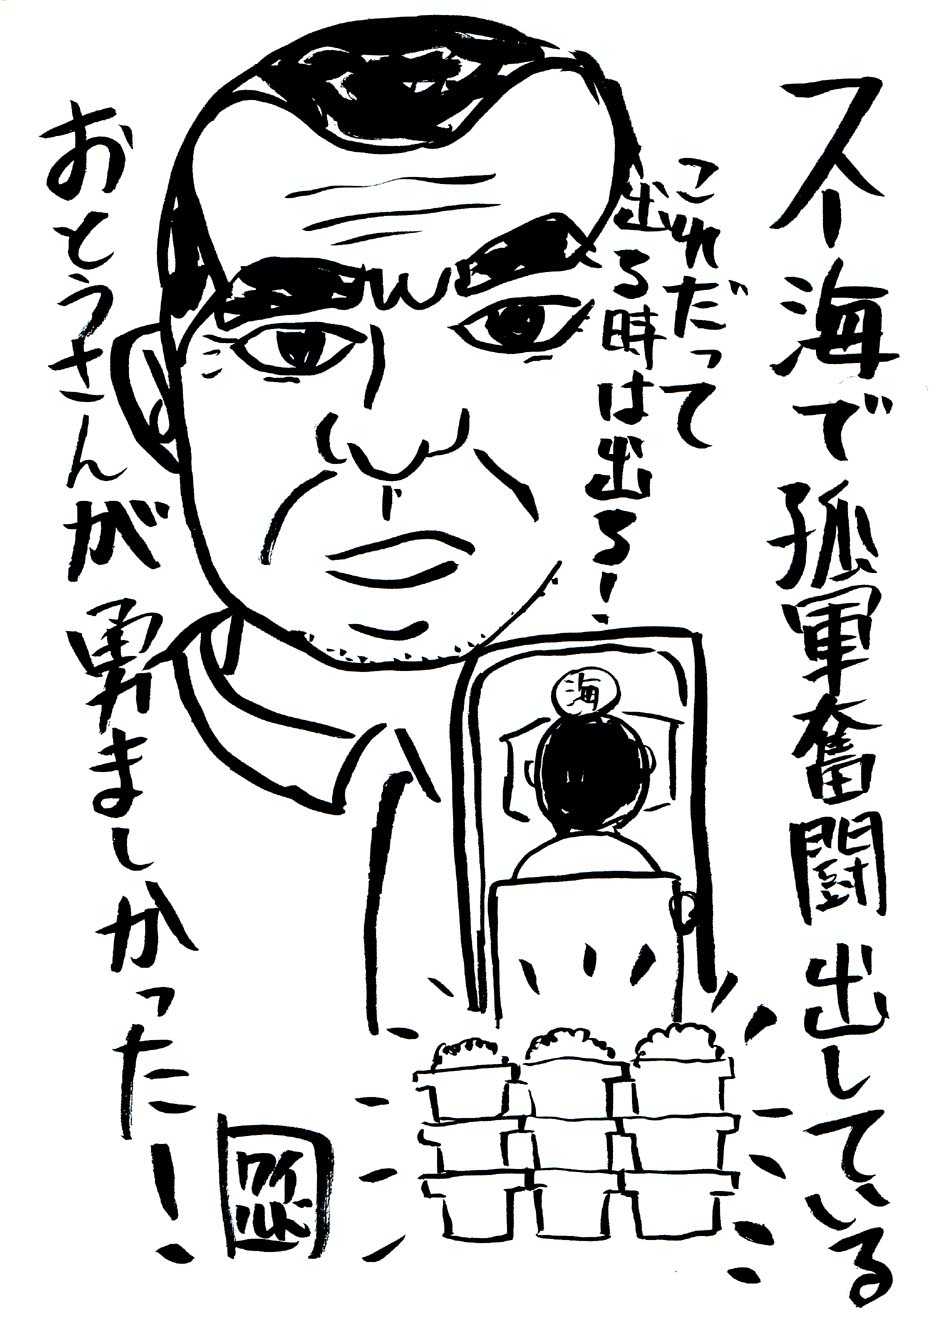 スー海で孤軍奮闘出している
これだって
出る時は出る!
海
おとうさんが勇ましかった!
ワイ
ルド